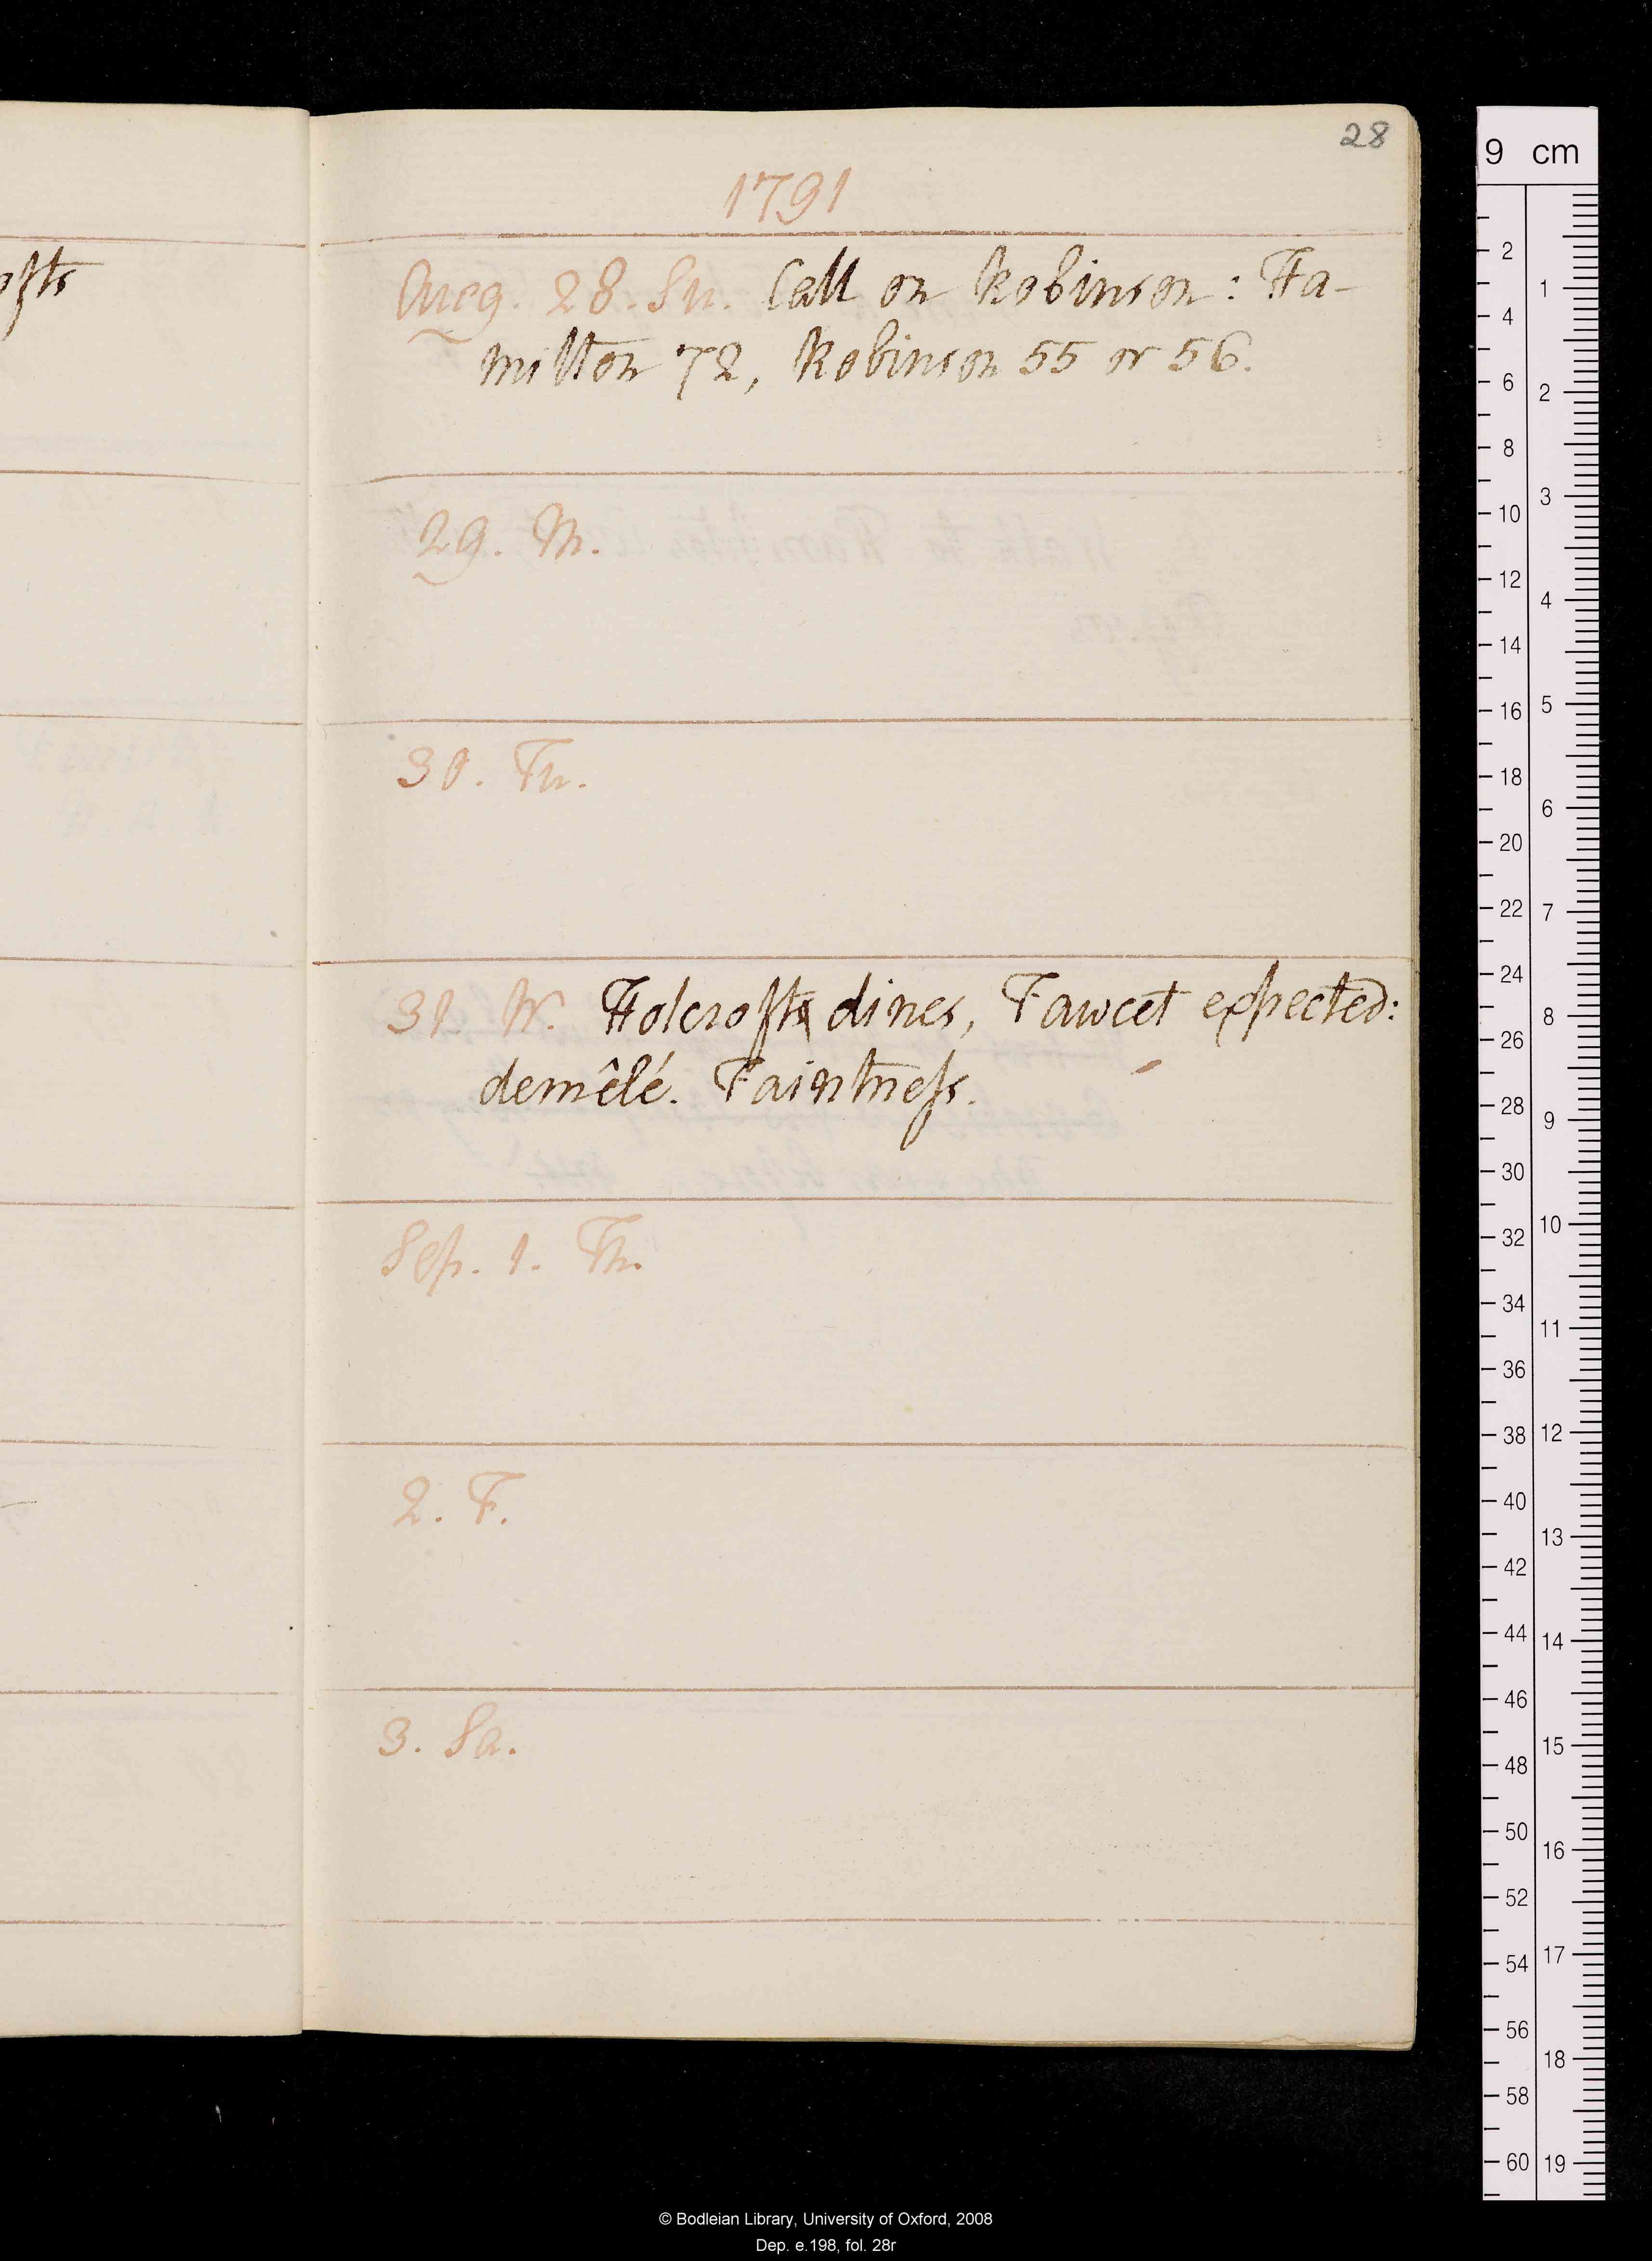 28
1791
Aug. 28. Su. Call on Robinson: Ha-
milton 72, Robinson 55 or 56.
29. M.
30. Tu.
31. W. Holcroft dines, Fawcet expected:
demêlé. Faintness.
Sep. 1. Th.
2. F.
3. Sa.
9 cm
2
4
6
8
10
12
14
16
18
20
22
24
26
28
30
32
34
36
38
40
42
44
46
48
50
52
54
56
58
60
1
2
3
4
5
6
7
8
9
10
11
12
13
14
15
16
17
18
19
© Bodleian Library, University of Oxford, 2008
Dep. e.198, fol. 28r